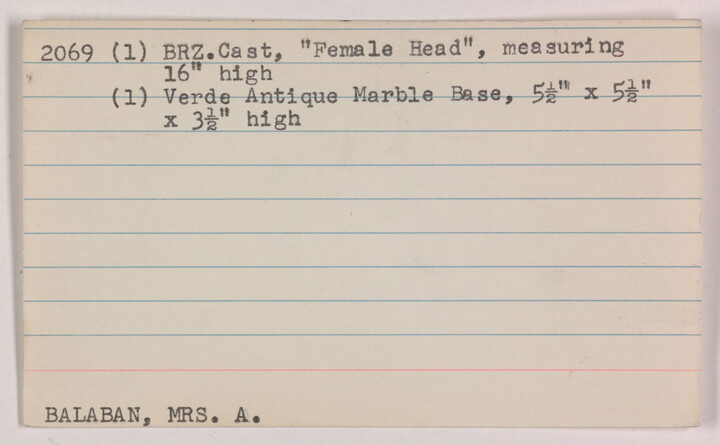 2069 (1) BRZ.Cast, "Female Head", measuring
16" high
(1) Verde Antique Marble Base, 5½" x 5½"
x 3½" high
BALABAN, MRS. A.